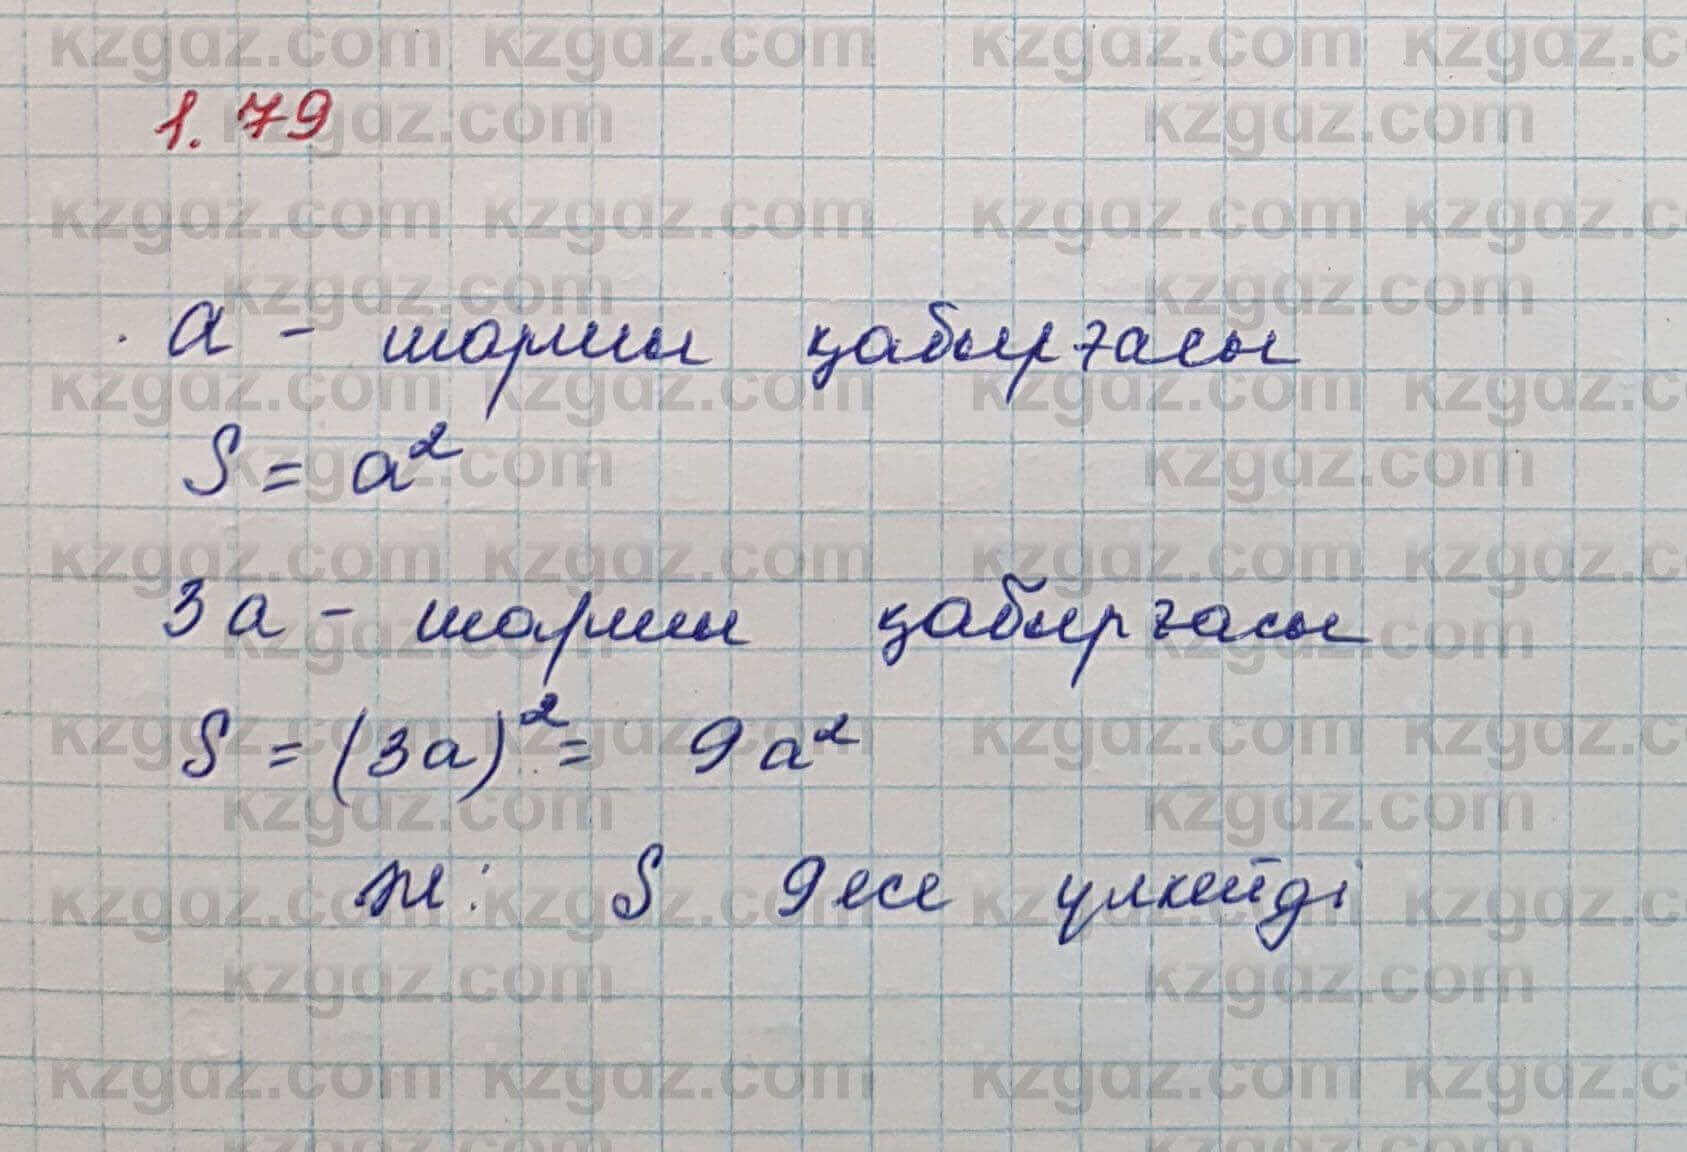 1.79
a - шаршы қабырғасы
S = a²
3a - шаршы қабырғасы
S = (3a)² = 9a²
ж: S 9 есе үлкейді
kzgdz.com